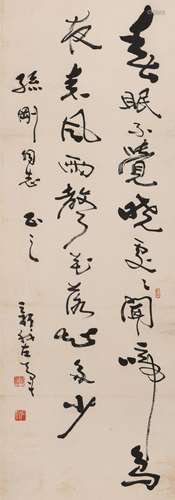 春眠不覺曉處處聞啼鳥
夜來風雨聲花落知多少
孫剛同志正之
新我左筆